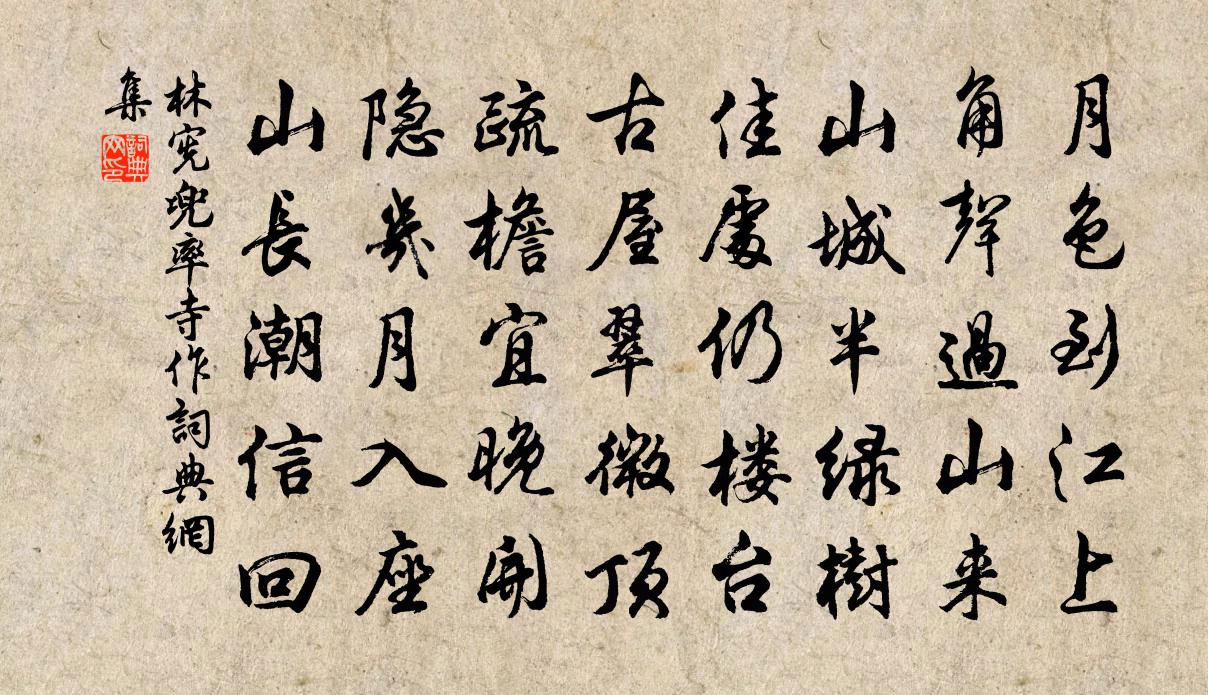 月色到江上
角聲過山来
山城半绿樹
佳處仍楼台
古屋翠微頂
疏檐宜晚開
隐几月入座
山長潮信回
林宪兜率寺作詞典網
集
詞典